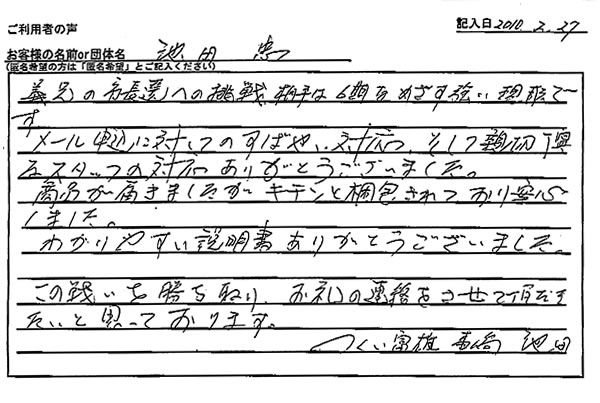 ご利用者の声
記入日 2010 2.27
お客様の名前or団体名 池田 忠
(匿名希望の方は「匿名希望」とご記入ください)
義兄の市長選への挑戦 相手は6期をめざす強い現職で
す
メール申込に対してのすばやい対応、そして親切丁寧
なスタッフの対応ありがとうございました。
商品が届きましたがキチンと梱包されており安心
しました。
わかりやすい説明書ありがとうございました。
この戦いを勝ち取り、お礼の連絡をさせて頂だき
たいと思っております。
富雄 池田